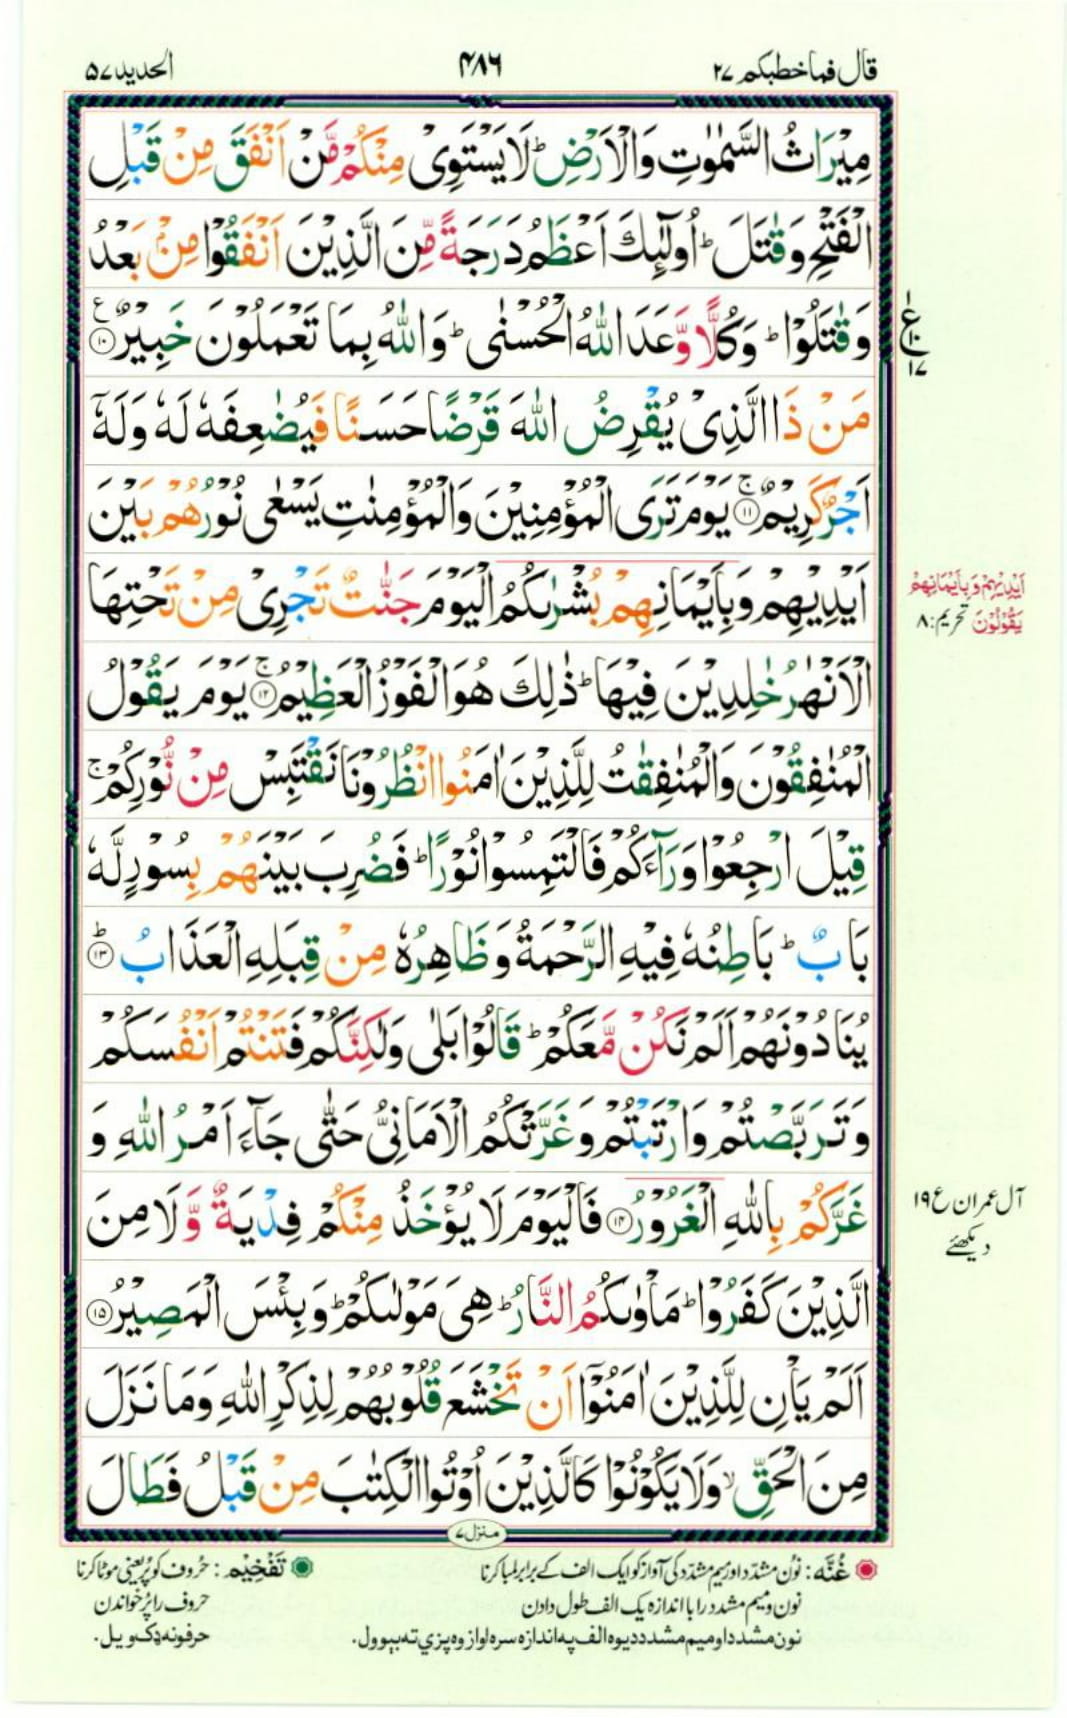 قال فما خطبکم ۲۷
۴۸۶
الحدید ۵۷
مِیْرَاثُ السَّمٰوٰتِ وَالْاَرْضِ ؕ لَا یَسْتَوِیْ مِنْكُمْ مَّنْ اَنْفَقَ مِنْ قَبْلِ
الْفَتْحِ وَقٰتَلَ ؕ اُولٰٓئِكَ اَعْظَمُ دَرَجَةً مِّنَ الَّذِیْنَ اَنْفَقُوْا مِنْۢ بَعْدُ
وَقٰتَلُوْا ؕ وَكُلًّا وَّعَدَ اللّٰهُ الْحُسْنٰی ؕ وَاللّٰهُ بِمَا تَعْمَلُوْنَ خَبِیْرٌ ۧ ﴿۱۰﴾
ع ۱۷
مَنْ ذَا الَّذِیْ یُقْرِضُ اللّٰهَ قَرْضًا حَسَنًا فَیُضٰعِفَهٗ لَهٗ وَلَهٗۤ
اَجْرٌ كَرِیْمٌ ۚ ﴿۱۱﴾ یَوْمَ تَرَی الْمُؤْمِنِیْنَ وَالْمُؤْمِنٰتِ یَسْعٰی نُوْرُهُمْ بَیْنَ
اَیْدِیْهِمْ وَبِاَیْمَانِهِمْ بُشْرٰىكُمُ الْیَوْمَ جَنّٰتٌ تَجْرِیْ مِنْ تَحْتِهَا
اَیْدِیْهِمْ وَبِاَیْمَانِهِمْ
یَقُوْلُوْنَ تحریم : ۸
الْاَنْهٰرُ خٰلِدِیْنَ فِیْهَا ؕ ذٰلِكَ هُوَ الْفَوْزُ الْعَظِیْمُ ۚ ﴿۱۲﴾ یَوْمَ یَقُوْلُ
الْمُنٰفِقُوْنَ وَالْمُنٰفِقٰتُ لِلَّذِیْنَ اٰمَنُوا انْظُرُوْنَا نَقْتَبِسْ مِنْ نُّوْرِكُمْ ۚ
قِیْلَ ارْجِعُوْا وَرَآءَكُمْ فَالْتَمِسُوْا نُوْرًا ؕ فَضُرِبَ بَیْنَهُمْ بِسُوْرٍ لَّهٗ
بَابٌ ؕ بَاطِنُهٗ فِیْهِ الرَّحْمَةُ وَظَاهِرُهٗ مِنْ قِبَلِهِ الْعَذَابُ ؕ ﴿۱۳﴾
یُنَادُوْنَهُمْ اَلَمْ نَكُنْ مَّعَكُمْ ؕ قَالُوْا بَلٰی وَلٰكِنَّكُمْ فَتَنْتُمْ اَنْفُسَكُمْ
وَتَرَبَّصْتُمْ وَارْتَبْتُمْ وَغَرَّتْكُمُ الْاَمَانِیُّ حَتّٰی جَآءَ اَمْرُ اللّٰهِ وَ
غَرَّكُمْ بِاللّٰهِ الْغَرُوْرُ ﴿۱۴﴾ فَالْیَوْمَ لَا یُؤْخَذُ مِنْكُمْ فِدْیَةٌ وَّلَا مِنَ
آل عمران ع ۱۹
دیکھئے
الَّذِیْنَ كَفَرُوْا ؕ مَاْوٰىكُمُ النَّارُ ؕ هِیَ مَوْلٰىكُمْ ؕ وَبِئْسَ الْمَصِیْرُ ﴿۱۵﴾
اَلَمْ یَاْنِ لِلَّذِیْنَ اٰمَنُوْۤا اَنْ تَخْشَعَ قُلُوْبُهُمْ لِذِكْرِ اللّٰهِ وَمَا نَزَلَ
مِنَ الْحَقِّ ۙ وَلَا یَكُوْنُوْا كَالَّذِیْنَ اُوْتُوا الْكِتٰبَ مِنْ قَبْلُ فَطَالَ
منزل ۷
غُنَّه : نون مشدد اور میم مشدد کی آواز کو ایک الف کے برابر لمبا کرنا
نون و میم مشدد را با اندازہ یک الف طول دادن
نون مشدد او میم مشدد دیوہ الف پہ اندازہ سرہ اواز وہ پزي تہ بېوول.
تَفْخِیْم : حروف کو پُر یعنی موٹا کرنا
حروف را پُر خواندن
حرفونہ ډک ویل.